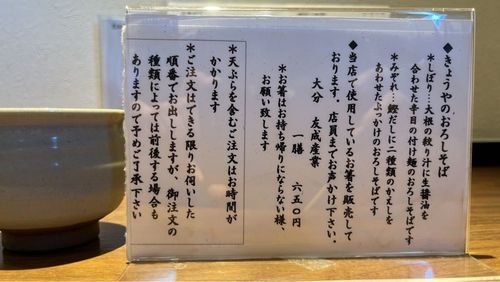 ◆きょうやのおろしそば
*しぼり…大根の絞り汁に生醤油を
合わせた辛目の付け麺のおろしそばです
*みぞれ…鰹だしに二種類のかえしを
あわせたぶっかけのおろしそばです
◆当店で使用しているお箸を販売して
おります。店員までお声かけ下さい。
大分 友成産業
一膳 六五〇円
*お箸はお持ち帰りにならない様、
お願い致します
*天ぷらを含むご注文はお時間が
かかります
*ご注文はできる限りお伺いした
順番でお出ししますが、御注文の
種類によっては前後する場合も
ありますので予めご了承下さい